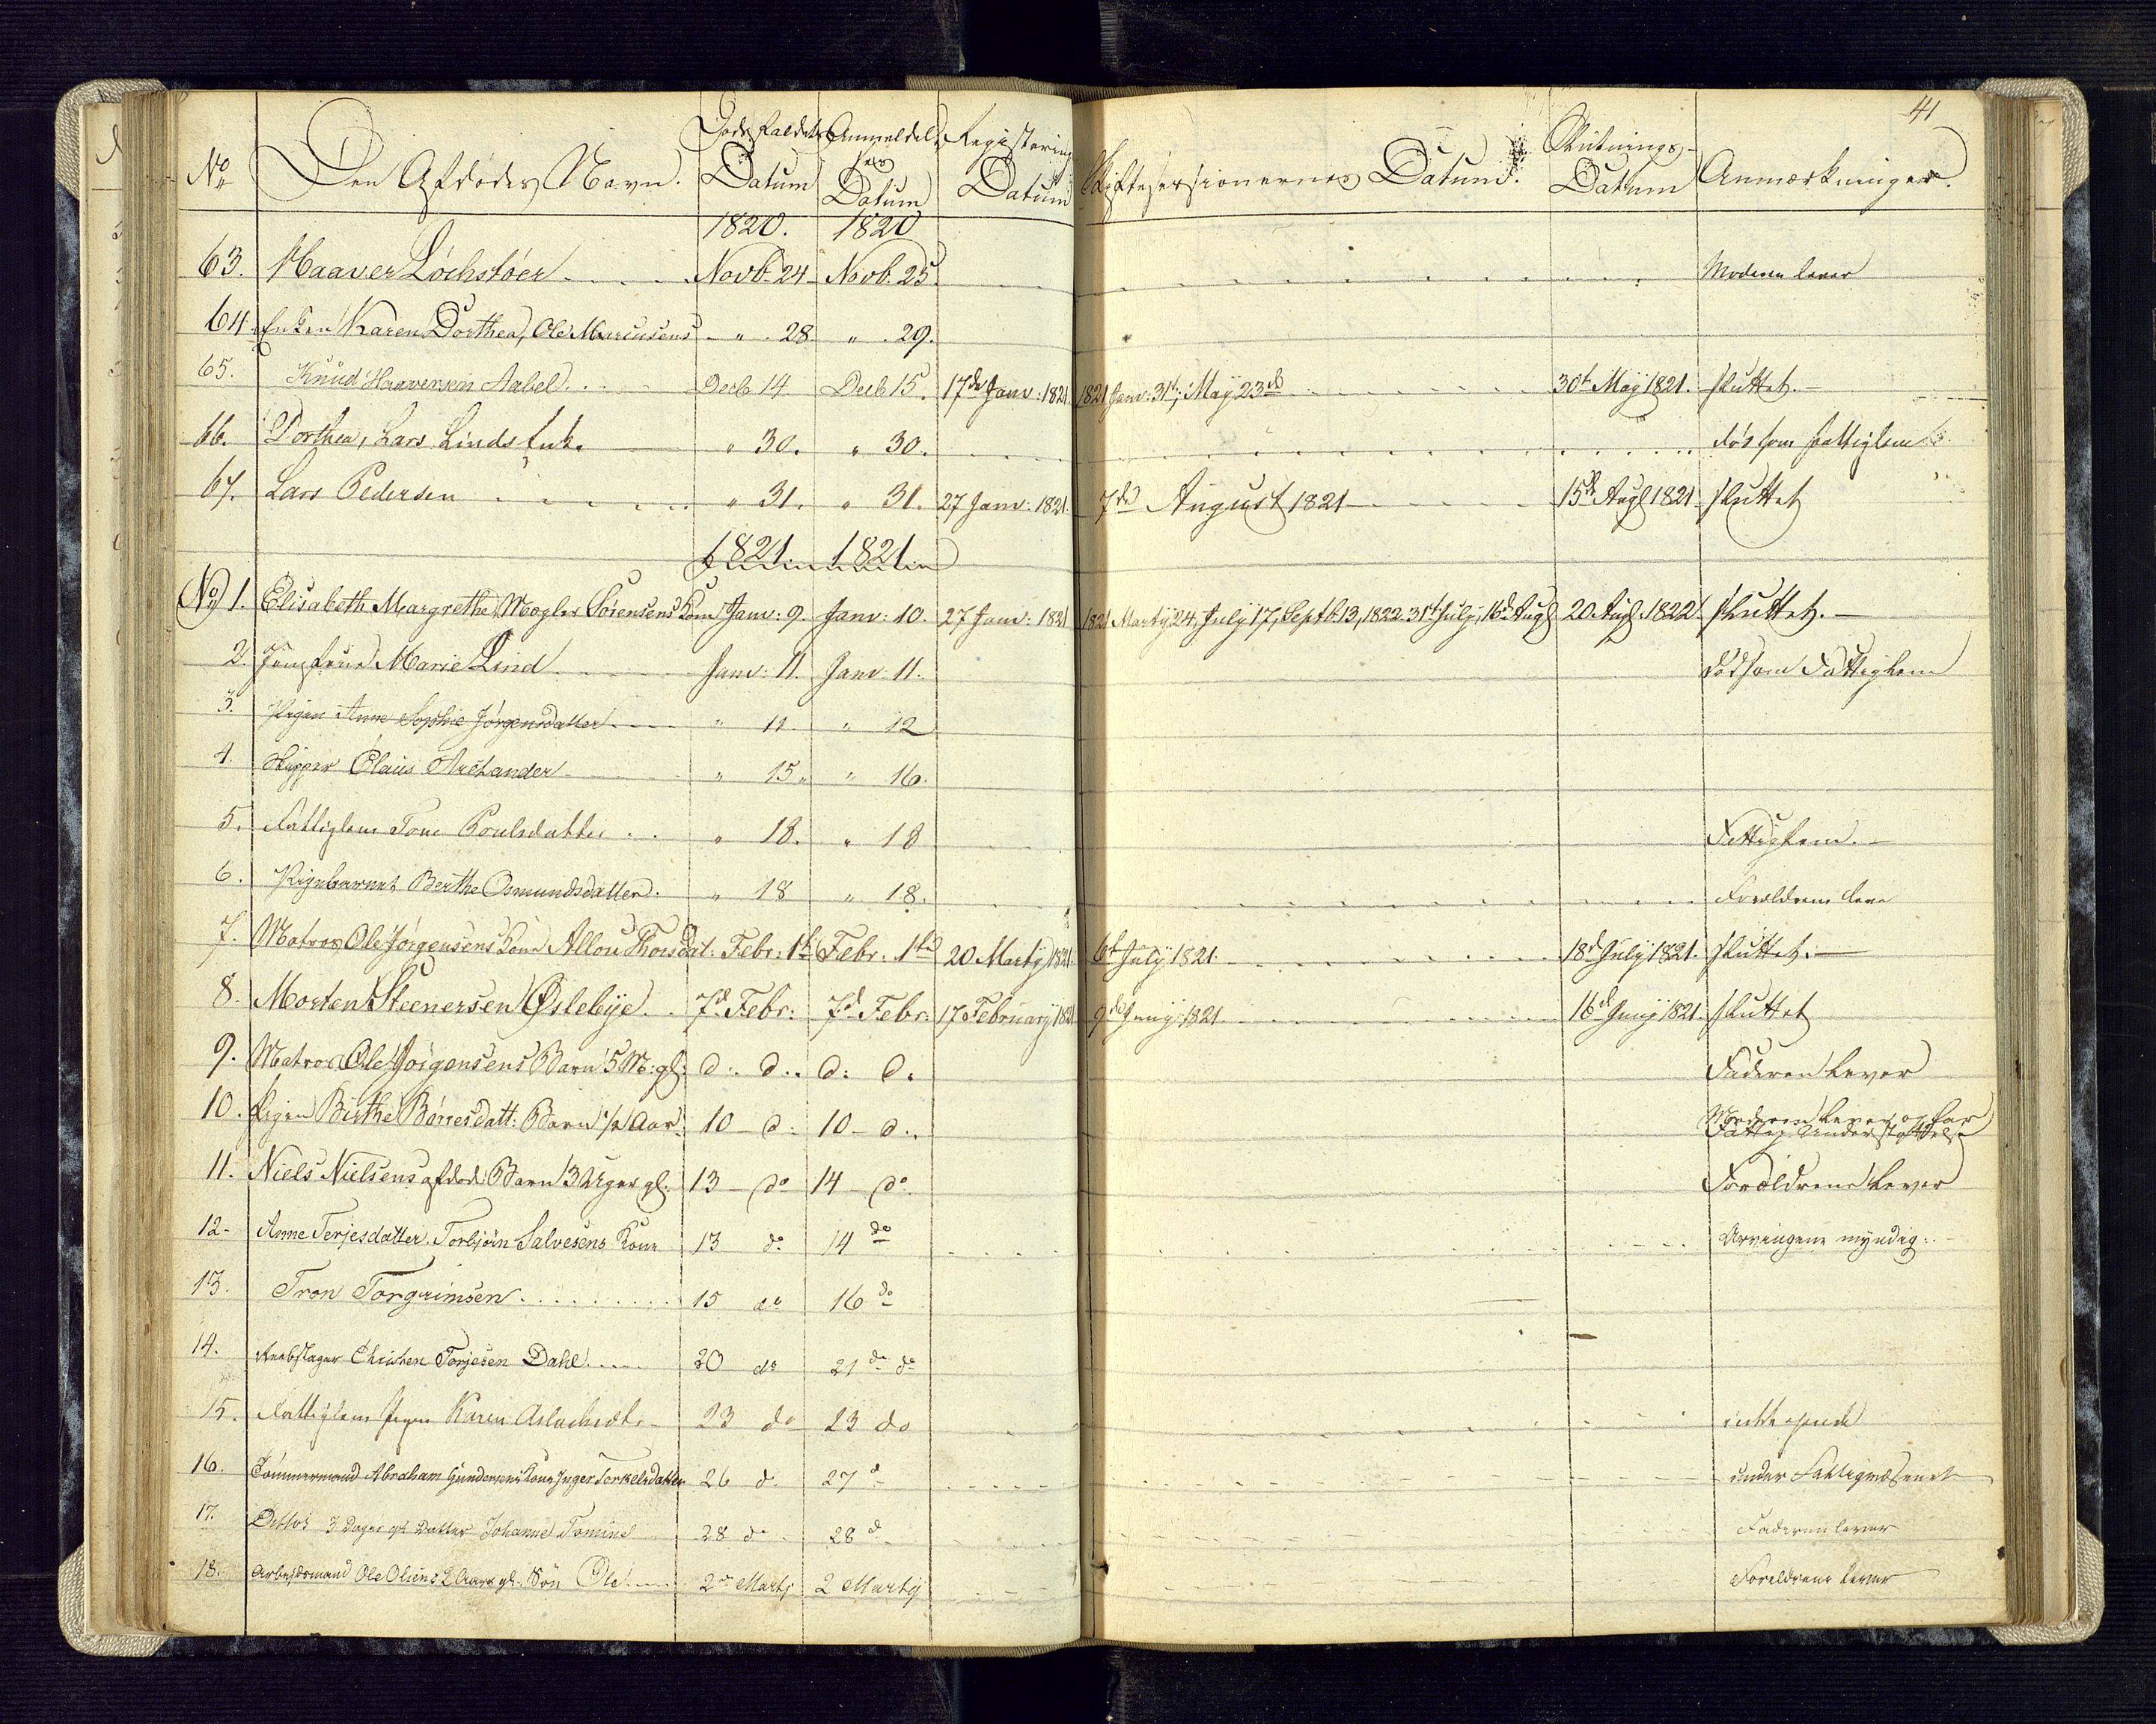 41
No Den Afdødes Navn. Dødsfaldets Datum Anmeldelsens Datum Registerings Datum Skiftesessionernes Datum. Slutnings-Datum Anmærkninger.
1820. 1820
63. Haaver Löchstöer Novb. 24 Novb. 25. Moderen lever
64. Enken Karen Dorthea, Ole Marcussens " 28. " 29.
65. Knud Haaversen Aabel Decb 14 Decb 15. 17de Janv: 1821. 1821 Janv: 31t; May 23de 30t May 1821. sluttet.
66. Dorthea, Lars Linds Enke " 30. " 30. død som fattiglem
67. Lars Pedersen " 31. " 31. 27 Janv: 1821. 7de August 1821 15de Augl 1821 sluttet
1821. 1821
No 1. Elisabeth Margrethe Mægler Sörensens Kone Janv: 9. Janv: 10. 27 Janv: 1821 1821 Marty 24, July 17, Septb. 13, 1822. 31t July, 16d Augl 20 Augl. 1822. sluttet.
2. Jomfrue Marie Lind Janv: 11. Janv: 11. død som Fattiglem
3. Pigen Anne Sophie Jörgensdatter " 11. " 12
4. Skipper Claus Archander " 15. " 16.
5. Fattiglem Tone Poulsdatter " 18. " 18 Fattiglem.
6. Pigebarnet Berthe Osmundsdatter. " 18 " 18. Forældrene leve
7. Matros Ole Jörgensens Kone Allou Thorsdat: Febr: 1t Febr: 1te 20 Marty 1821. 6t July 1821. 18d July 1821. sluttet.
8. Morten Steenersen Öslebye 7d Febr: 7d Febr: 17 February 1821 9de Juny 1821. 16d Juny 1821. sluttet
9. Matros Ole Jörgensens Barn 5 M: gl: d: d: d: d. Faderen lever
10. Pigen Birthe Börresdatt: Barn 1/2 Aar 10 d: 10 d: Moderen lever og har
Fattig Understøttelse
11. Niels Nielsens afdøde Barn 3 Uger gl. 13 do 14 do Forældrene lever
12. Anne Terjesdatter Torbjörn Salvesens Kone 13 do 14 do Arvingene myndig:
13. Tron Torgrimsen 15 do 16 do
14. Reebslager Christen Terjesen Dahl 20 do 21 do do
15. Fattiglem Pigen Karen Aslachsdt. 23 do 23 do intet ejende
16. Tömmermand Abraham Gundersens Kone Inger Terkelsdatter 26 d. 27 d under Fattigvæsenet
17. Dittos 3 Dages gl. Datter Johanne Tomine 28 do 28 d Faderen lever
18. Arbejdsmand Ole Olsens 2 Aars gl. Sön Ole 2de Marty 2 Marty Forældrene lever